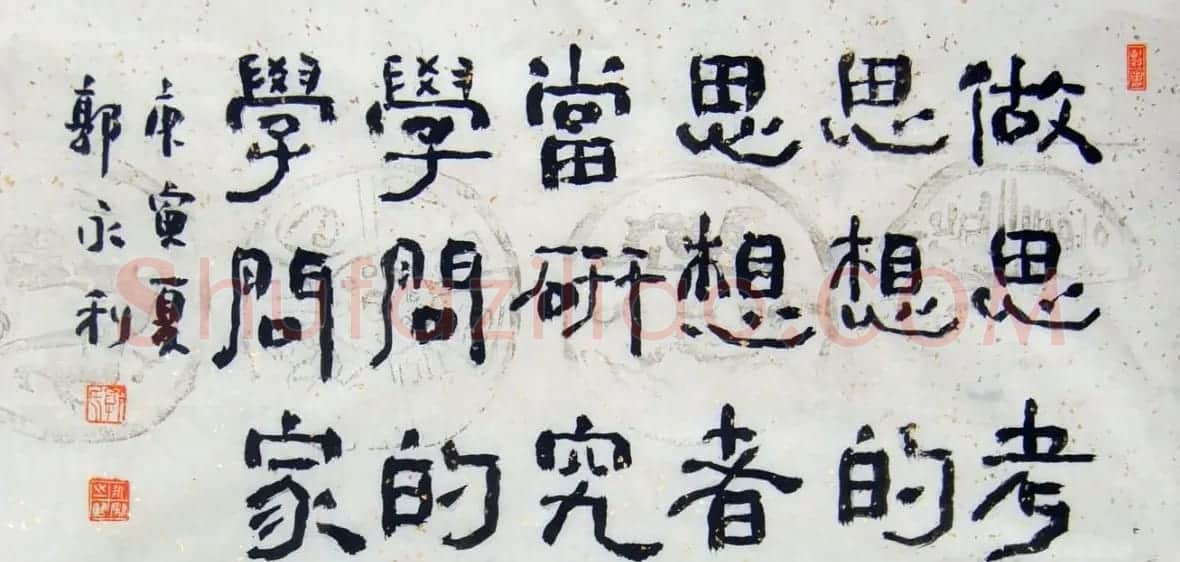 做思考
思想的
思想者
當研究
學問的
學問家
庚寅夏
郭永利
Shufaziliao.COM